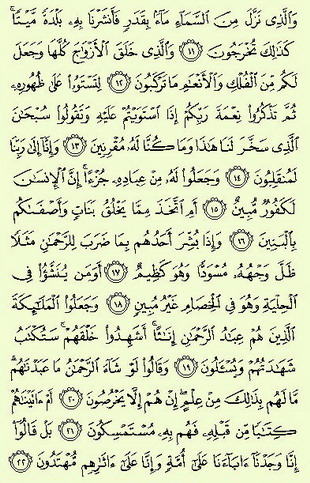 وَٱلَّذِى نَزَّلَ مِنَ ٱلسَّمَآءِ مَآءًۢ بِقَدَرٍ فَأَنشَرْنَا بِهِۦ بَلْدَةً مَّيْتًا ۚ
كَذَٰلِكَ تُخْرَجُونَ ١١ وَٱلَّذِى خَلَقَ ٱلْأَزْوَٰجَ كُلَّهَا وَجَعَلَ
لَكُم مِّنَ ٱلْفُلْكِ وَٱلْأَنْعَٰمِ مَا تَرْكَبُونَ ١٢ لِتَسْتَوُۥا۟ عَلَىٰ ظُهُورِهِۦ
ثُمَّ تَذْكُرُوا۟ نِعْمَةَ رَبِّكُمْ إِذَا ٱسْتَوَيْتُمْ عَلَيْهِ وَتَقُولُوا۟ سُبْحَٰنَ
ٱلَّذِى سَخَّرَ لَنَا هَٰذَا وَمَا كُنَّا لَهُۥ مُقْرِنِينَ ١٣ وَإِنَّآ إِلَىٰ رَبِّنَا
لَمُنقَلِبُونَ ١٤ وَجَعَلُوا۟ لَهُۥ مِنْ عِبَادِهِۦ جُزْءًا ۚ إِنَّ ٱلْإِنسَٰنَ
لَكَفُورٌ مُّبِينٌ ١٥ أَمِ ٱتَّخَذَ مِمَّا يَخْلُقُ بَنَاتٍ وَأَصْفَىٰكُم
بِٱلْبَنِينَ ١٦ وَإِذَا بُشِّرَ أَحَدُهُم بِمَا ضَرَبَ لِلرَّحْمَٰنِ مَثَلًا
ظَلَّ وَجْهُهُۥ مُسْوَدًّا وَهُوَ كَظِيمٌ ١٧ أَوَمَن يُنَشَّؤُا۟ فِى
ٱلْحِلْيَةِ وَهُوَ فِى ٱلْخِصَامِ غَيْرُ مُبِينٍ ١٨ وَجَعَلُوا۟ ٱلْمَلَٰٓئِكَةَ
ٱلَّذِينَ هُمْ عِبَٰدُ ٱلرَّحْمَٰنِ إِنَٰثًا ۚ أَشَهِدُوا۟ خَلْقَهُمْ ۚ سَتُكْتَبُ
شَهَٰدَتُهُمْ وَيُسْـَٔلُونَ ١٩ وَقَالُوا۟ لَوْ شَآءَ ٱلرَّحْمَٰنُ مَا عَبَدْنَٰهُم ۗ
مَّا لَهُم بِذَٰلِكَ مِنْ عِلْمٍ ۖ إِنْ هُمْ إِلَّا يَخْرُصُونَ ٢٠ أَمْ ءَاتَيْنَٰهُمْ
كِتَٰبًا مِّن قَبْلِهِۦ فَهُم بِهِۦ مُسْتَمْسِكُونَ ٢١ بَلْ قَالُوٓا۟
إِنَّا وَجَدْنَآ ءَابَآءَنَا عَلَىٰٓ أُمَّةٍ وَإِنَّا عَلَىٰٓ ءَاثَٰرِهِم مُّهْتَدُونَ ٢٢